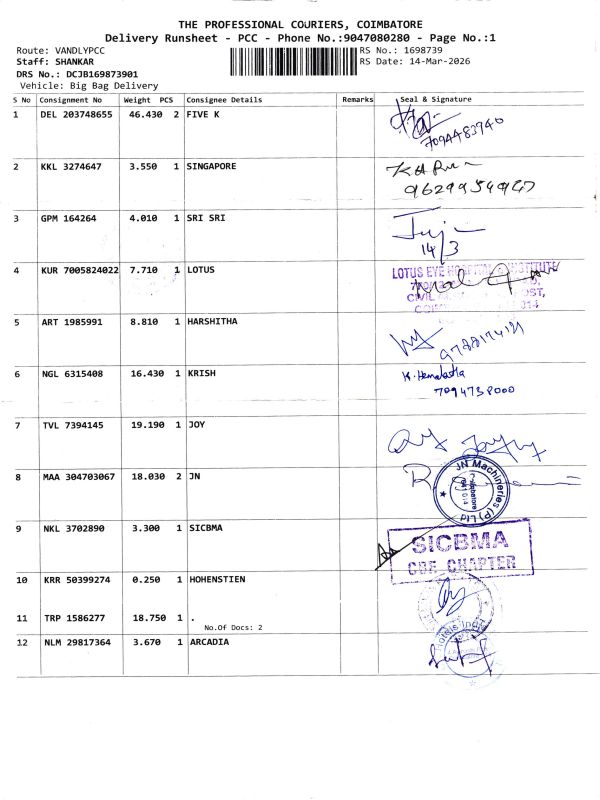 THE PROFESSIONAL COURIERS, COIMBATORE
Delivery Runsheet - PCC - Phone No.:9047080280 - Page No.:1
Route: VANDLYPCC RS No.: 1698739
Staff: SHANKAR RS Date: 14-Mar-2026
DRS No.: DCJB169873901
Vehicle: Big Bag Delivery
S No Consignment No Weight PCS Consignee Details Remarks Seal & Signature
1 DEL 203748655 46.430 2 FIVE K
7094483940
2 KKL 3274647 3.550 1 SINGAPORE
3 GPM 164264 4.010 1 SRI SRI
14/3
4 KUR 7005824022 7.710 1 LOTUS
LOTUS EYE HOSPITAL & INSTITUTE
5 ART 1985991 8.810 1 HARSHITHA
6 NGL 6315408 16.430 1 KRISH
K. Hemalatha
7094738000
7 TVL 7394145 19.190 1 JOY
8 MAA 304703067 18.030 2 JN
JN Machineries (P) Ltd
9 NKL 3702890 3.300 1 SICBMA
SICBMA
CBE CHAPTER
10 KRR 50399274 0.250 1 HOHENSTIEN
11 TRP 1586277 18.750 1 .
No.Of Docs: 2
12 NLM 29817364 3.670 1 ARCADIA